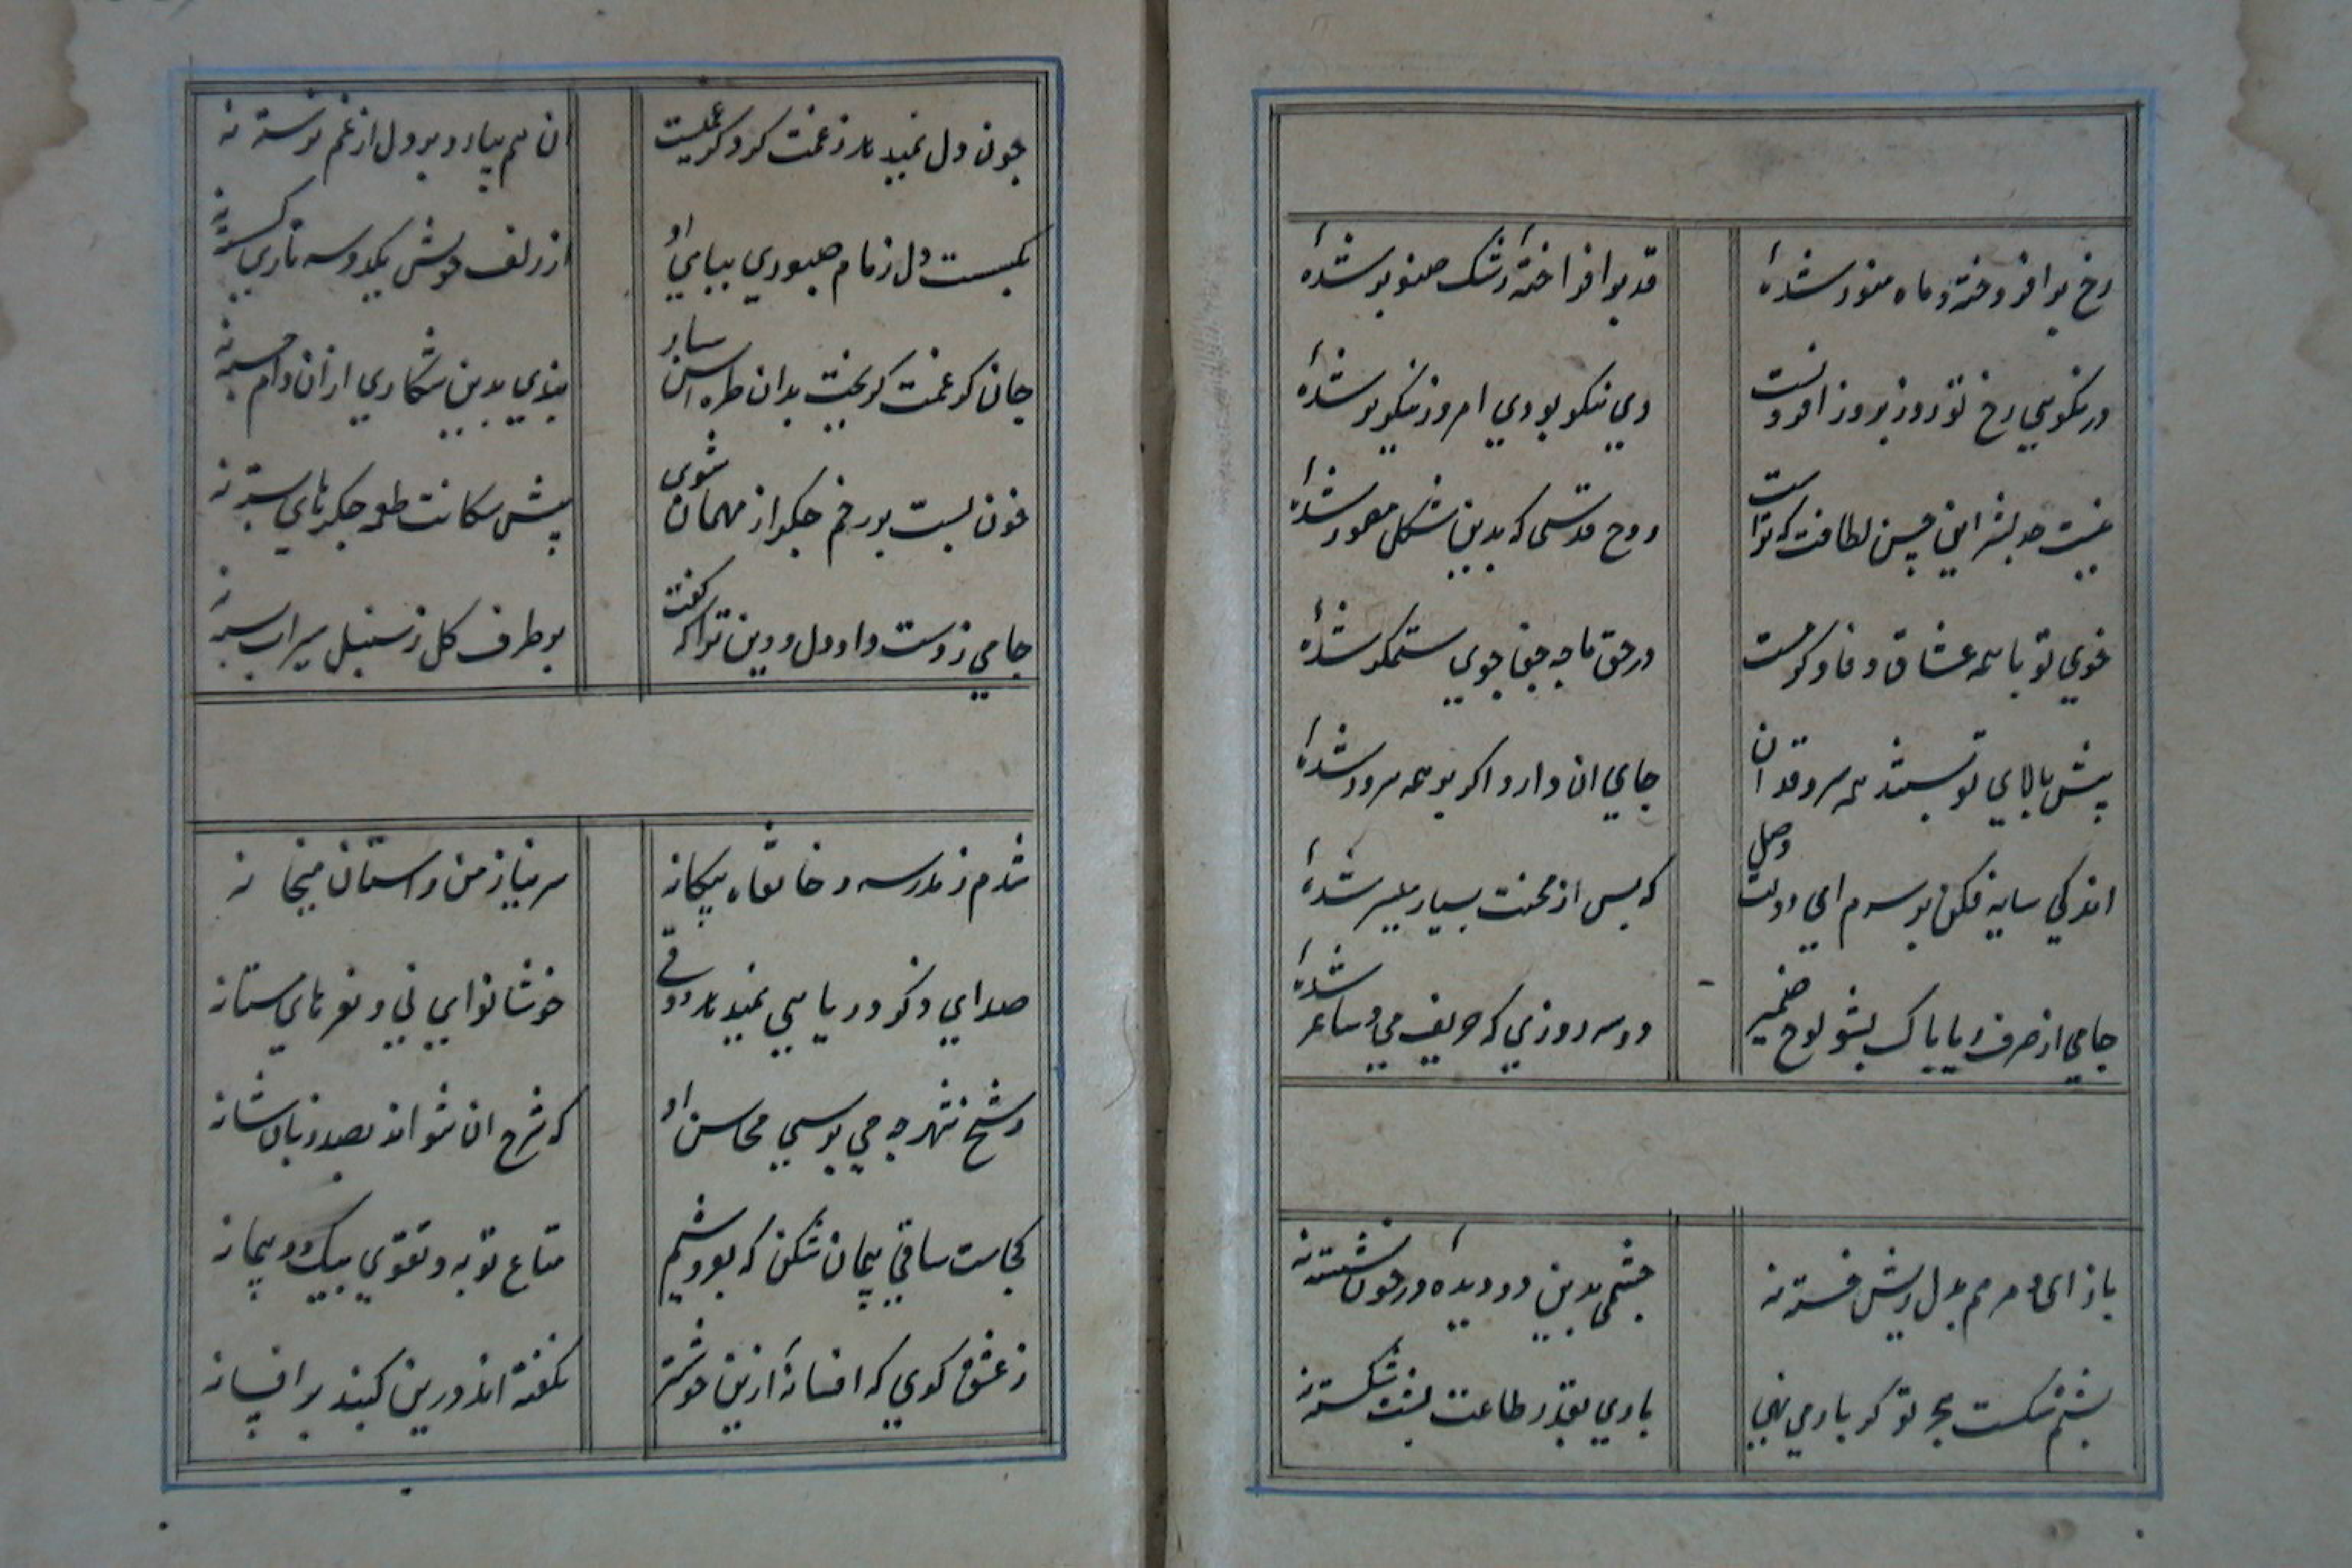 رخ برافروخته و ماه منور شدهٔ
قد برافراختهٔ رشک صنوبر شدهٔ
در نکویی رخ تو روز بروز افزونست
دی نکو بودی امروز نکوتر شدهٔ
نیست حد بشر این حسن لطافت که تراست
روح قدسی که بدین شکل مصور شدهٔ
خوی تو با همه عشاق وفا و کرمست
در حق ما چه جفا جوی ستمگر شدهٔ
پیش بالای تو پستند همه سرو قدان
جای آن دارد اگر بر همه سرور شدهٔ
اندکی سایه فکن بر سرم ای دولت وصل
که پس از محنت بسیار میسر شدهٔ
جامی از حرف ریا پاک بشو لوح ضمیر
دو سه روزی که حریف می و ساغر شدهٔ
باز آی و مرهم بدل ریش خسته نه
چشمی بدین دو دیده در خون نشسته نه
پشتم شکست هجر تو گر بار می نهی
باری بقدر طاقت پشت شکسته نه
چون دل نمیدهد ز غمت گر دگر غمیست
آن هم بیار و بر دل از غم نرسته نه
بگسست دل زمام صبوری بپای او
از زلف خویش یکدو سه تاری گسسته نه
جان کز غمت گریخت بدان طره اش سپار
بندی بدین شکاری از آن دام جسته نه
خون بست بر رخم جگر از مهمان شوی
پیش سگانت طعمه جگرهای بسته نه
جامی ز دست داد دل و دین ترا که گفت
بر طرف گل ز سنبل سیراب دسته نه
شدم ز مدرسه و خانقاه بیگانه
سر نیاز من و آستان میخانه
صدای ذکر ریایی نمیدهد ذوقی
خوشا نوای نی و نعرهای مستانه
ز شیخ شهر چه می پرسی محاسن او
که شرح آن نتواند بصد زبان شانه
کجاست ساقی پیمان شکن که بفروشیم
متاع توبه و تقوی بیک دو پیمانه
ز عشق گوی که افسانهٔ ازین خوشتر
نگفته اند درین گنبد پر افسانه